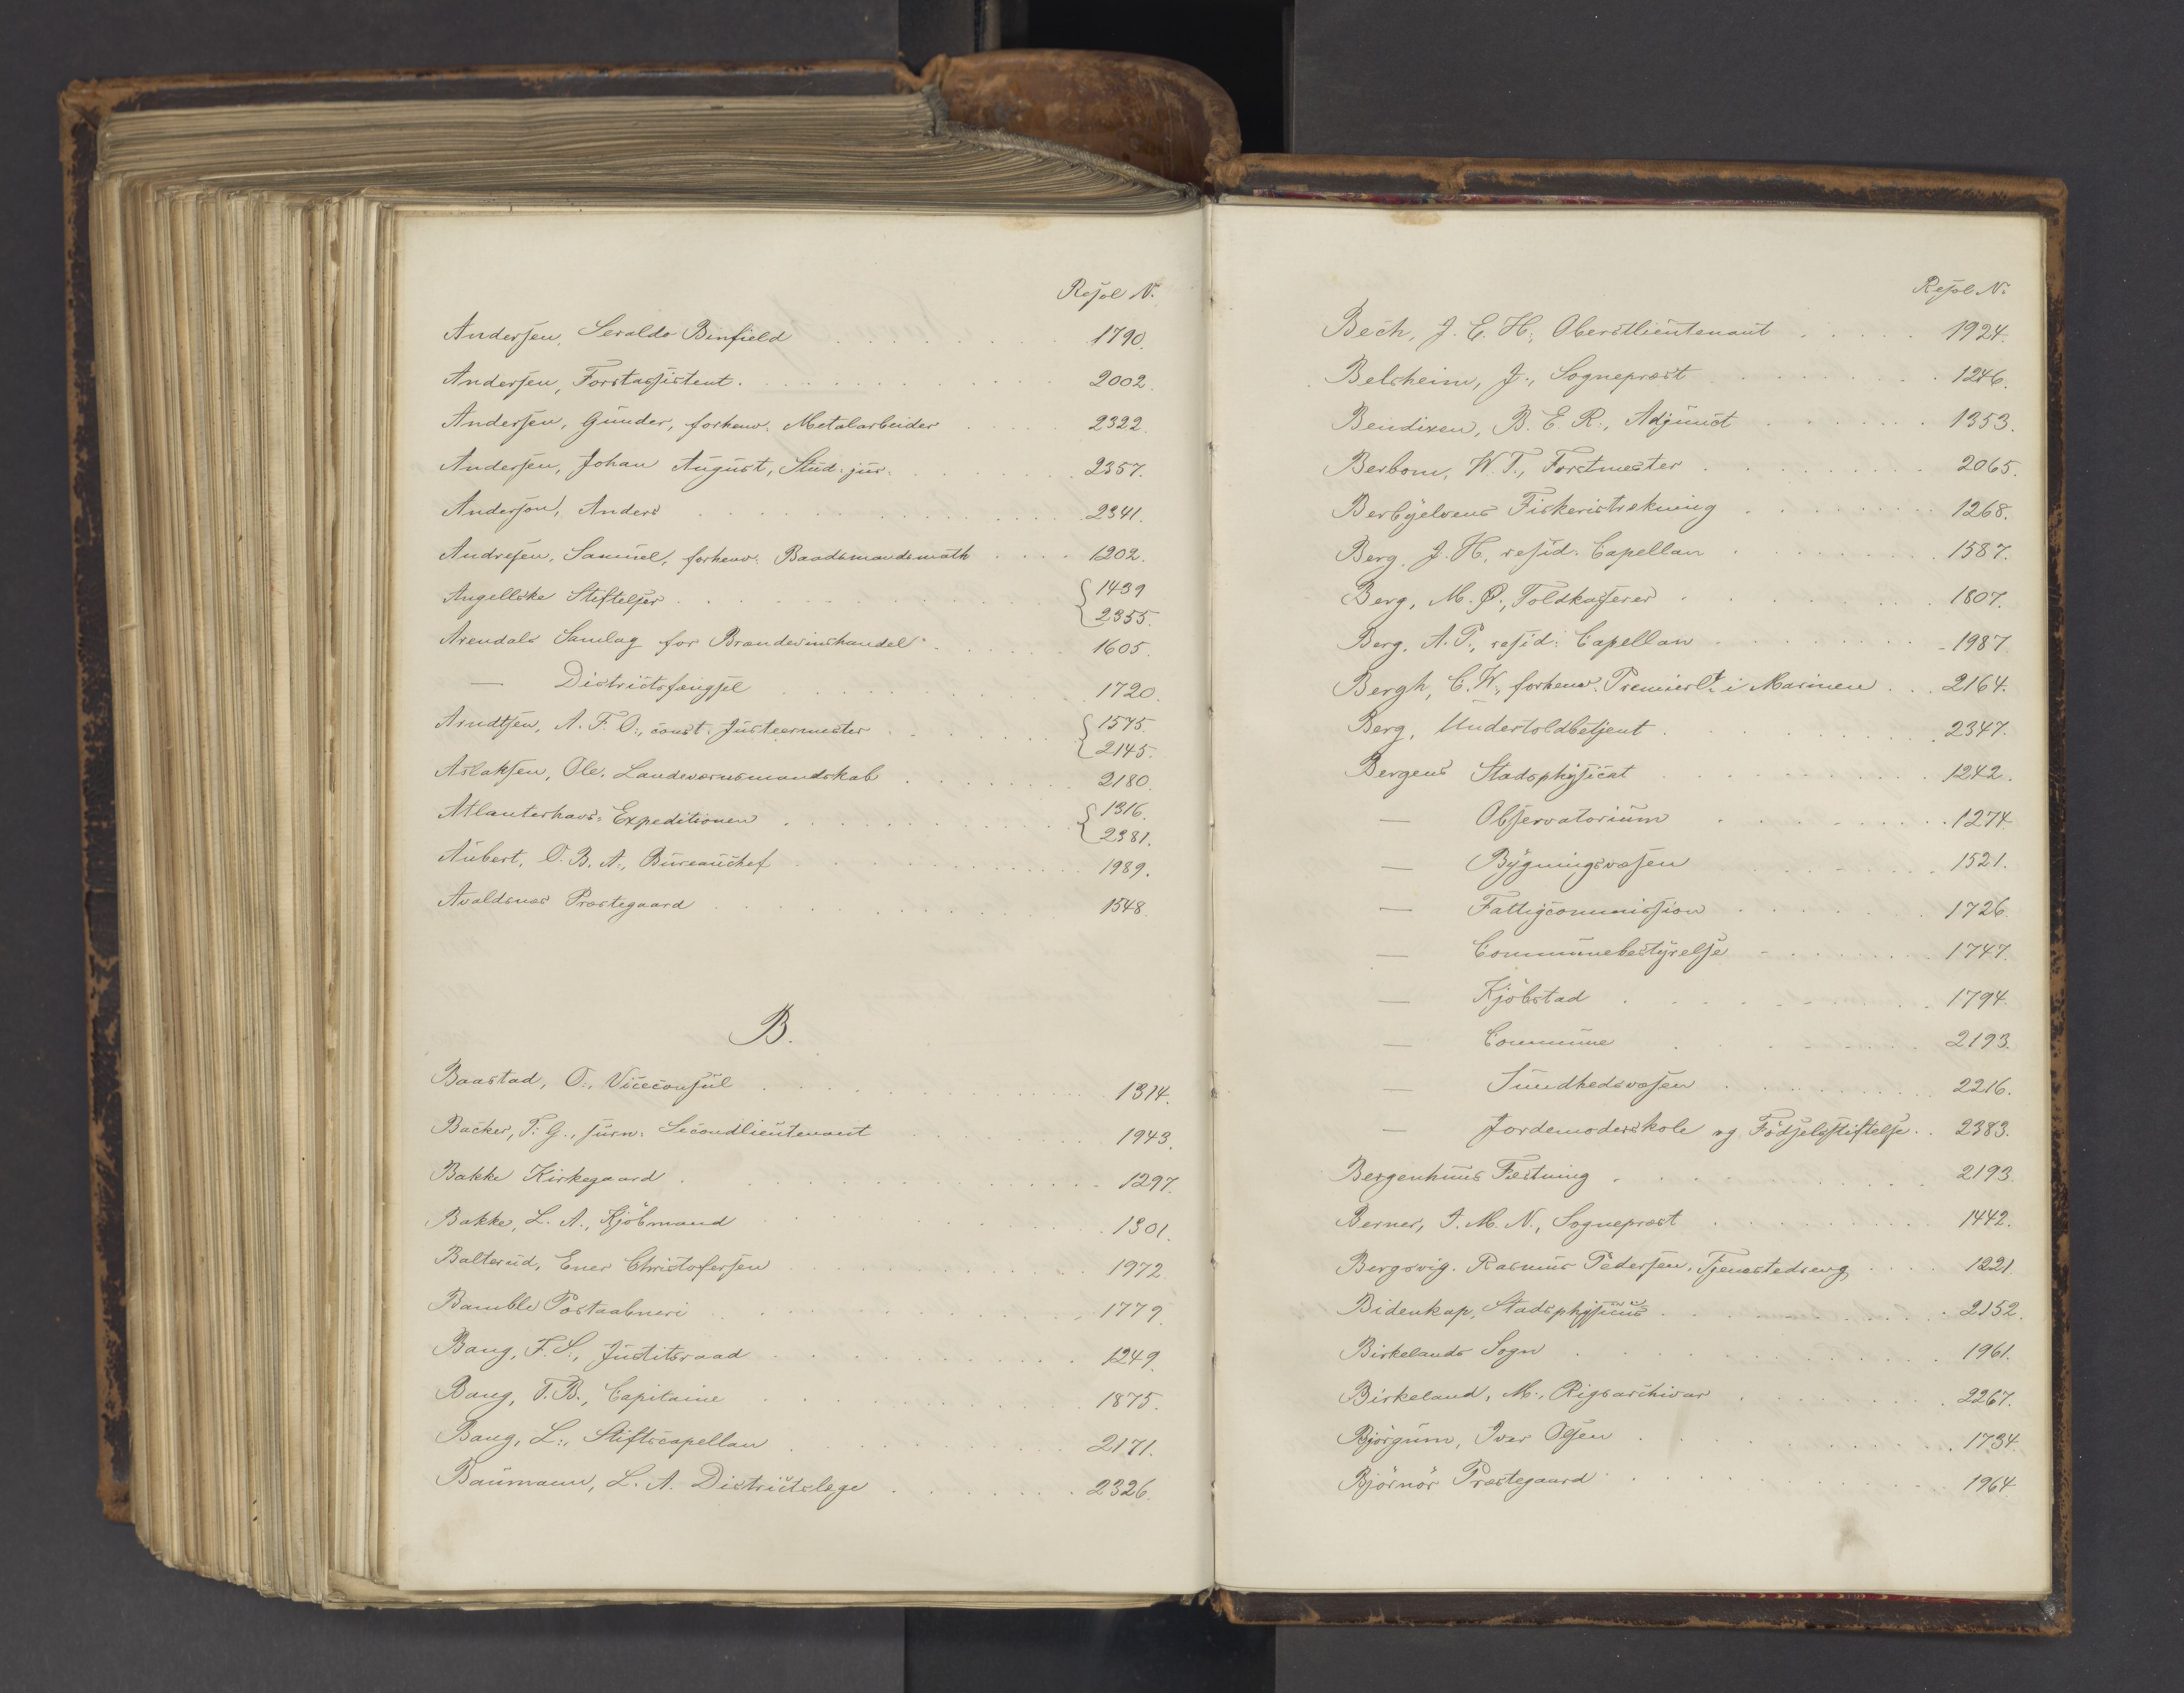 Resol N:
Andersen, Seralds Binfield 1790.
Andersen, Forstassistent. 2002.
Andersen, Gunder, forhenv. Metalarbeider 2322.
Andersen, Johan August, Stud. jur. 2357.
Anderson, Anders 2341.
Andresen, Samuel, forhenv. Baadsmandsmath 1202.
Angellske Stiftelser 1439
2355.
Arendals Samlag for Brændevinshandel 1605.
— Districtsfængsel 1720.
Arndtsen, A. F. O., const. Justeermester 1575.
2145.
Aslaksen, Ole, Landeværnsmandskab 2180.
Atlanterhavs-Expeditionen 1316.
2381.
Aubert, O. B. A., Bureauchef 1989.
Avaldsnæs Præstegaard 1548.
B.
Baastad, O., Viceconsul 1314.
Backer, T. G., surn. Secondlieutenant 1943.
Bakke Kirkegaard 1297.
Bakke, L. A., Kjöbmand 1301.
Balterud, Ener Christofersen 1972.
Bamble Postaabneri 1779.
Bang, F. S., Justitsraad 1249.
Bang, T. B., Capitaine 1875.
Bang, L., Stiftscapellan 2171.
Baumann, L. A. Districtslæge 2326.
Resol N:
Bech, J. E. H., Oberstlieutenant 1924.
Belsheim, J., Sognepræst 1246.
Bendixen, B. E. R., Adjunct 1353.
Berbom, W. T., Forstmester 2065.
Berbyelvens Fiskeristrækning 1268.
Berg, J. H. resid. Capellan 1587.
Berg, M. Ø., Toldkasserer 1807.
Berg, A. P., resid. Capellan 1987.
Bergh, C. W., forhenv. Premierlt. i Marinen 2164.
Berg, Undertoldbetjent 2347.
Bergens Stadsphysicat 1242.
— Observatorium 1274.
— Bygningsvæsen 1521.
— Fattigcommission 1726.
— Communebestyrelse 1747.
— Kjöbstad 1794.
— Commune 2193.
— Sundhedsvæsen 2216.
— Jordemoderskole og Födselsstiftelse 2383.
Bergenhuus Fæstning 2193.
Berner, J. M. N., Sognepræst 1442.
Bergsvig, Rasmus Pedersen, Tjenestedreng 1221.
Bidenkap, Stadsphysicus 2152.
Birkelands Sogn 1961.
Birkeland, M., Rigsarchivar 2267.
Bjørgum, Iver Olsen 1734.
Bjørnør Præstegaard 1964